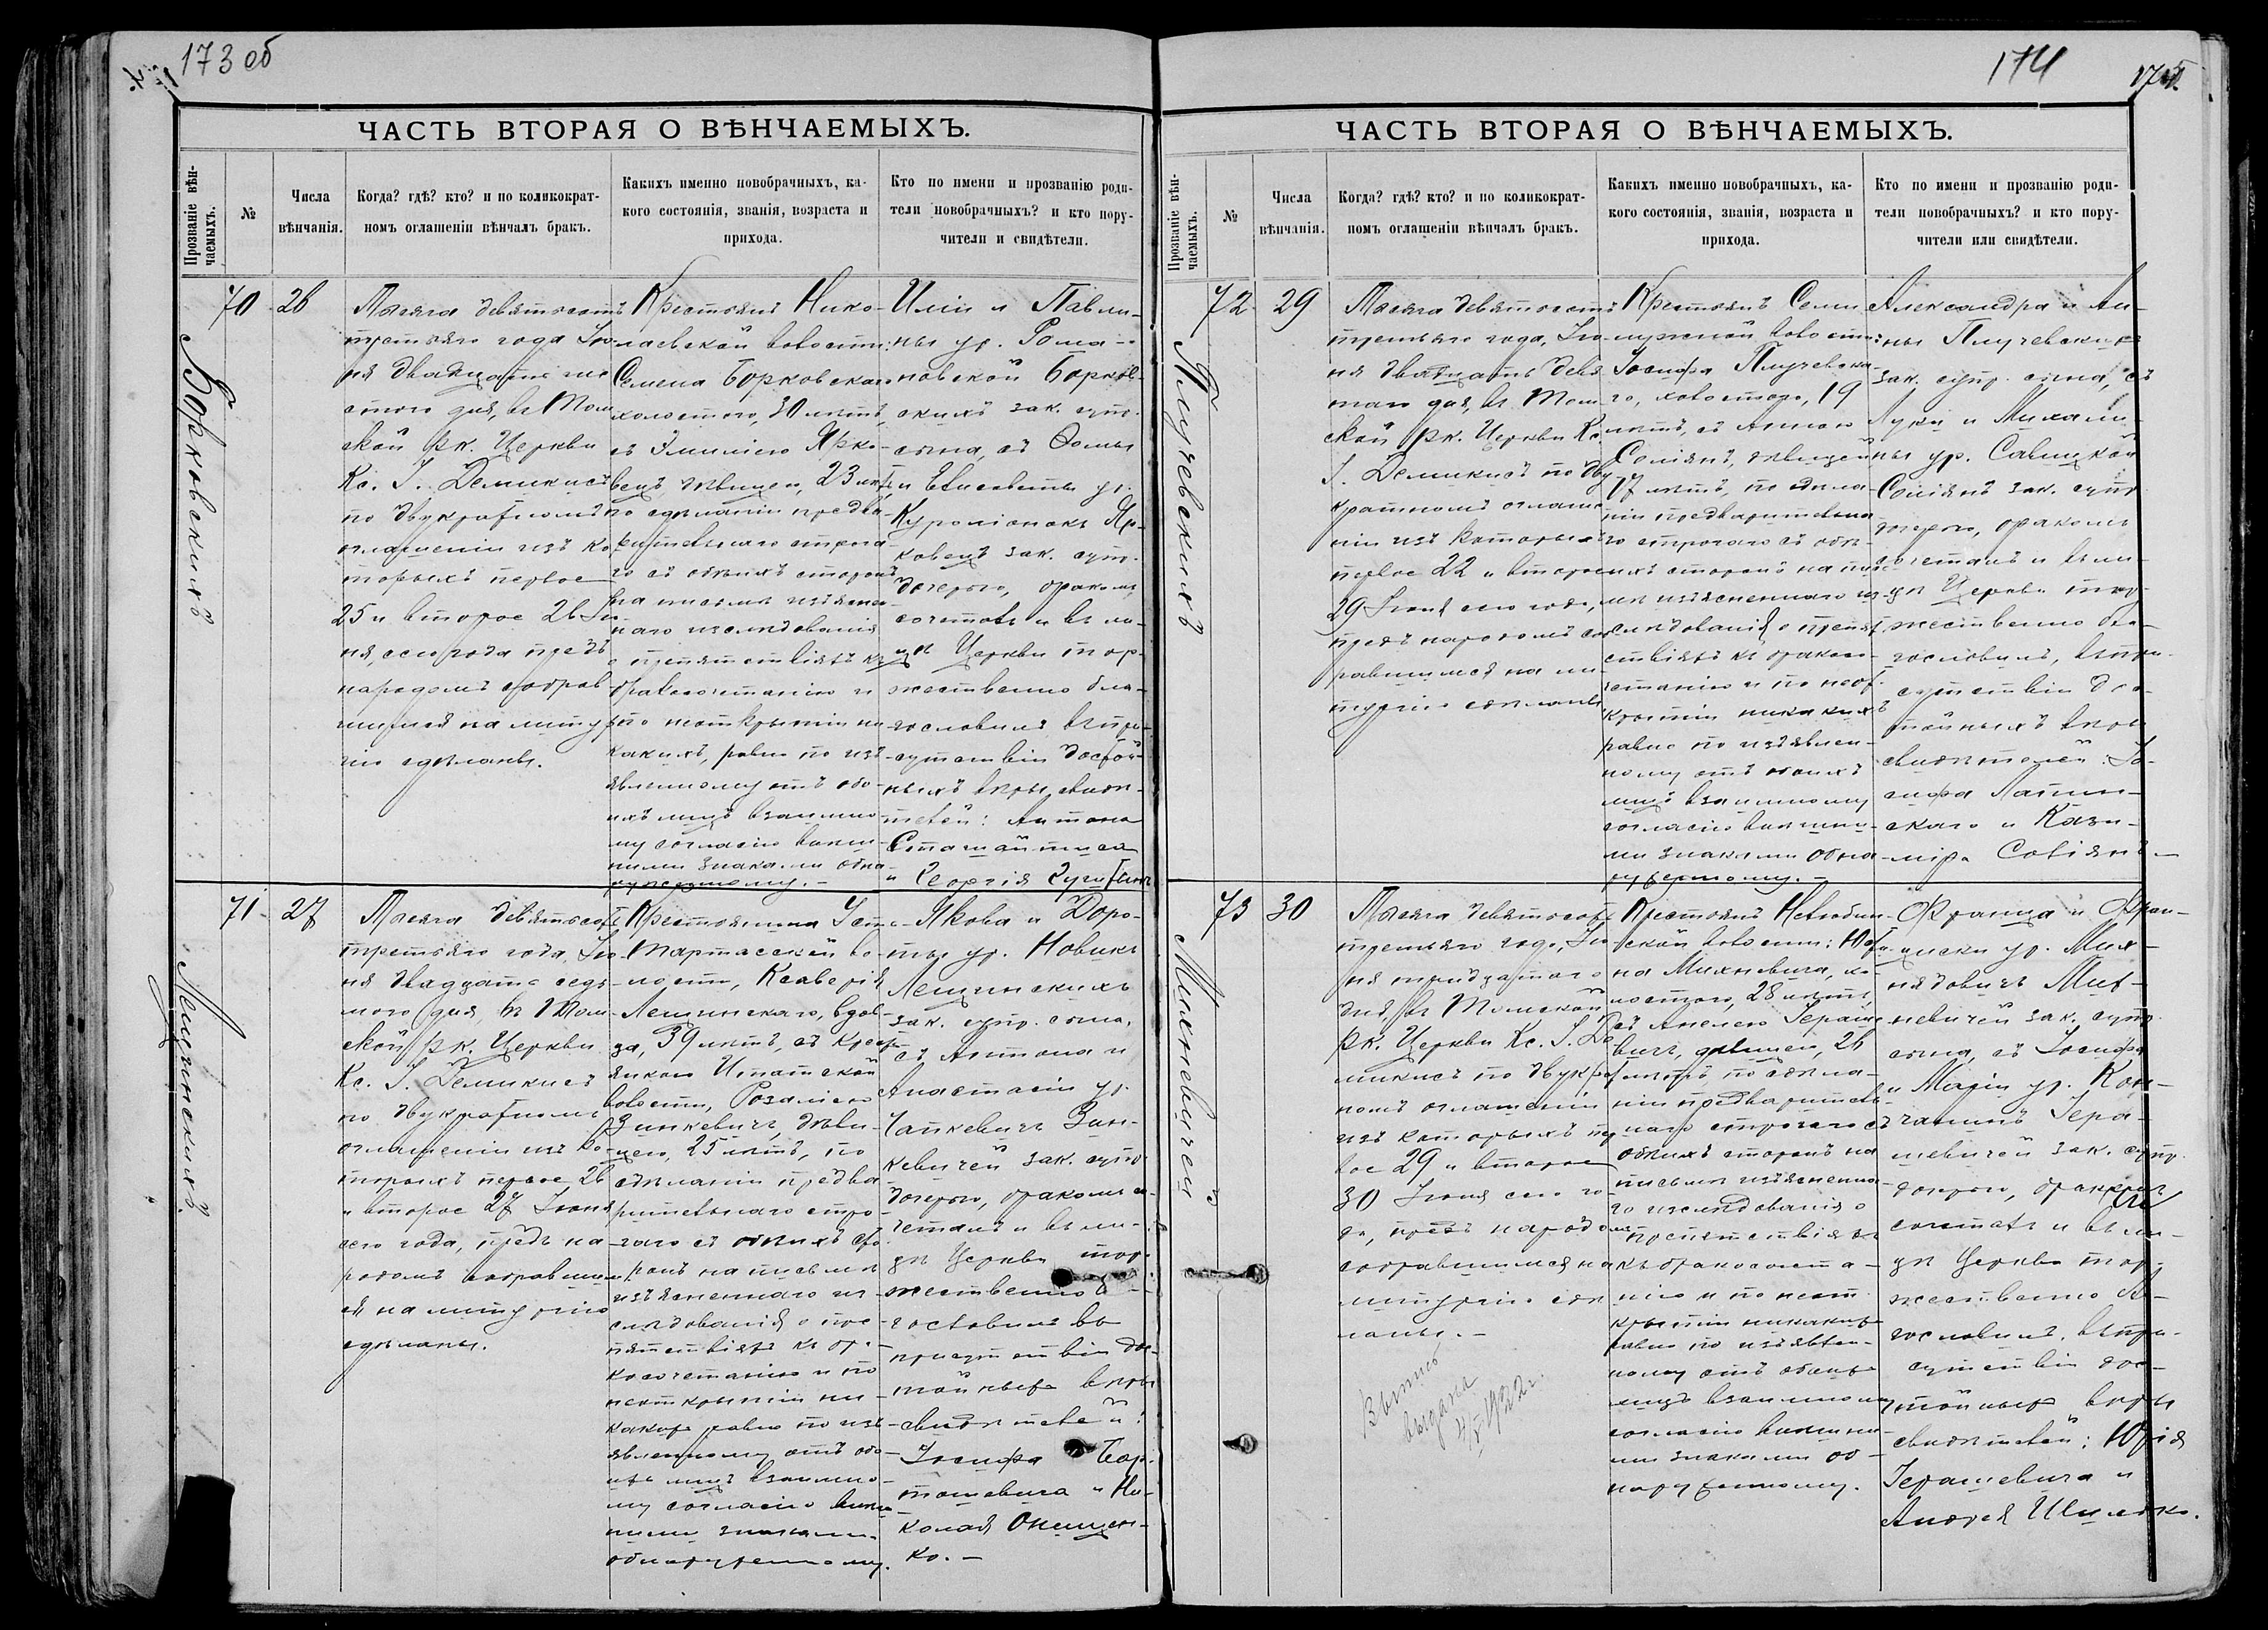 173 об
ЧАСТЬ ВТОРАЯ О ВѢНЧАЕМЫХЪ.
Прозваніе вѣн-
чаемыхъ.
№
Числа
вѣнчанія.
Когда? гдѣ? кто? и по коликократ-
номъ оглашеніи вѣнчалъ бракъ.
Какихъ именно новобрачныхъ, ка-
кого состоянія, званія, возраста и
прихода.
Кто по имени и прозванію роди-
тели новобрачныхъ? и кто пору-
чители и свидѣтели.
Борковскихъ
70
26
Тысяча девятьсотъ
третьяго года Iю
ня двадцать ше
стого дня, въ Том
ской рк. Церкви
Кс. I. Демикисъ
по двукратномъ
оглашеніи изъ ко
торыхъ первое
25 и второе 26 Iю
ня, сего года предъ
народомъ собрав
шимся на литур
гію сдѣланы.
Крестьянъ Нико-
лаевской волости:
Семена Борковскаго
холостого, 30 лѣтъ,
съ Эмиліею Ярко-
вецъ дѣвицею, 23 лѣтъ
по сдѣланіи предва-
рительнаго строга-
го съ обѣихъ сторонъ
на письмѣ изъяснен
наго изслѣдованія
о препятствіяхъ къ
бракосочетанію и
по неоткрытіи ни
какихъ, равно по изъ
явленному отъ обо-
ихъ лицъ взаимно
му согласію внѣш-
ними знаками обна-
руженному. –
Иліи и Павли-
ны ур. Рома-
новской Борков-
скихъ зак. супр.
сына, съ Ѳомы
и Елисаветы ур.
Куроліонокъ Яр-
ковецъ зак. супр.
дочерью, бракомъ
сочеталъ и въ ли-
цѣ Церкви тор-
жественно бла-
гословилъ въ при-
сутствіи достой-
ныхъ вѣры свидѣ-
телей: Антона
Сташайтиса
и Георгія
Лещинскихъ.
71
27
Тысяча девятьсотъ
третьяго года, Iю
ня двадцать седь
мого дня, въ Том
ской рк. Церкви
Кс. I. Демикисъ
по двукратномъ
оглашеніи изъ ко
торыхъ первое 26
и второе 27 Iюня
сего года, предъ на
родомъ собравшим
ся на литургію
сдѣланы.
Крестьянина Усть-
Тартасской во-
лости, Ксаверія
Лещинскаго, вдов-
ца, 39 лѣтъ, съ крестъ
янкою Ишатской
волости, Розаліею
Зинкевичъ, дѣви-
цею, 25 лѣтъ, по
сдѣланіи предва
рительнаго стро-
гаго съ обѣихъ сто
ронъ на письмѣ
изъясненнаго из-
слѣдованія о пре-
пятствіяхъ къ бра-
косочетанію и по
неоткрытіи ни-
какихъ равно по изъ
явленному отъ обо-
ихъ лицъ взаимно-
му согласію внѣш
ними знаками
обнаруженному.
Якова и Доро-
ты ур. Новикъ
Лещинскихъ
зак. супр. сына,
съ Антона и
Анастасіи ур.
Чапкевичъ Зин-
кевичей зак. супр.
дочерью, бракомъ со-
четалъ и въ ли-
цѣ Церкви тор-
жественно б-
гословилъ въ
присутствіи дос-
тойныхъ вѣры
свидѣтелей:
Iосифа Бар-
тошевича и Ни-
колая Онищен-
ко. –
174
ЧАСТЬ ВТОРАЯ О ВѢНЧАЕМЫХЪ.
Прозваніе вѣн-
чаемыхъ.
№
Числа
вѣнчанія.
Когда? гдѣ? кто? и по коликократ-
номъ оглашеніи вѣнчалъ бракъ.
Какихъ именно новобрачныхъ, ка-
кого состоянія, званія, возраста и
прихода.
Кто по имени и прозванію роди-
тели новобрачныхъ? и кто пору-
чители или свидѣтели.
Плучевскихъ
72
29
Тысяча девятьсотъ
третьяго года, Iю
ня двадцать девя
таго дня, въ Том
ской рк. Церкви Кс.
I. Демикисъ по дву
кратномъ оглаше
ніи изъ которыхъ
первое 22 и второе
29 Iюня сего года,
предъ народомъ соб
равшимся на ли
тургію сдѣланы
Крестьянъ Семи
лужной волости:
Iосифа Плучевска-
го, холостого, 19
лѣтъ, съ Анною
Соліянъ, дѣвицей
17 лѣтъ, по сдѣла-
ніи предварительна
го строгаго съ обѣ-
ихъ сторонъ на пись
мѣ изъясненнаго из-
слѣдованія о препят
ствіяхъ къ бракосо-
четанію и по неот-
крытіи никакихъ
равно по изъявлен-
ному отъ обоихъ
лицъ взаимному
согласію внѣшни-
ми знаками обна-
руженному. –
Александра и Ан-
ны Плучевскихъ
зак. супр. сына, съ
Луки и Михали-
ны ур. Савицкой
Соліянъ зак. супр.
дочерью, бракомъ
сочеталъ и въ ли-
цѣ Церкви тор-
жественно бла-
гословилъ, въ при-
сутствіи дос-
тойныхъ вѣры
свидѣтелей: Iо-
сифа Лапин-
скаго и Кази-
міра Соліянъ –
Михневичей
73
30
Тысяча девятьсотъ
третьяго года, Iю
ня тридцатаго
дня, въ Томской
рк. Церкви Кс. I. Де
микисъ по двукрат
номъ оглашеніи
изъ которыхъ пер
вое 29 и второе
30 Iюня сего го-
да, предъ народомъ
собравшимся на
литургію сдѣ
ланы. –
Выпись
выдана
4/X 1922 г.
Крестьянъ Нелюбин-
ской волости: Юсти-
на Михневича, хо-
лостого, 28 лѣтъ,
съ Анелею Гераше
вичъ, дѣвицею, 26
лѣтъ, по сдѣла-
ніи предваритель-
наго строгаго съ
обѣихъ сторонъ на
письмѣ изъясненна-
го изслѣдованія о
препятствіяхъ
къ бракосочета-
нію и по неот
крытіи никакихъ
равно по изъявлен-
ному отъ обоихъ
лицъ взаимному
согласію внѣшни-
ми знаками об-
наруженному.
Франца и Фран-
циски ур. Мих-
нядовичъ Мих-
невичей зак. супр.
сына, съ Iосифа
и Маріи ур. Кор-
чагинъ Гера-
шевичей зак. супр.
дочерью, бракомъ
сочеталъ и въ ли-
цѣ Церкви тор-
жественно бла-
гословилъ, въ при-
сутствіи дос-
тойныхъ вѣры
свидѣтелей: Юрія
Герашевича и
Андрея